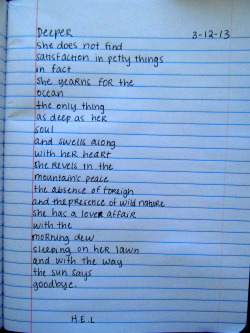 Deeper 3-12-13
she does not find
satisfaction in petty things
in fact
she yearns for the
ocean
the only thing
as deep as her
soul
and swells along
with her heart
she revels in the
mountain's peace
the absence of foreign
and the presence of wild nature
she has a lover affair
with the
morning dew
sleeping on her lawn
and with the way
the sun says
goodbye.
H.E.L